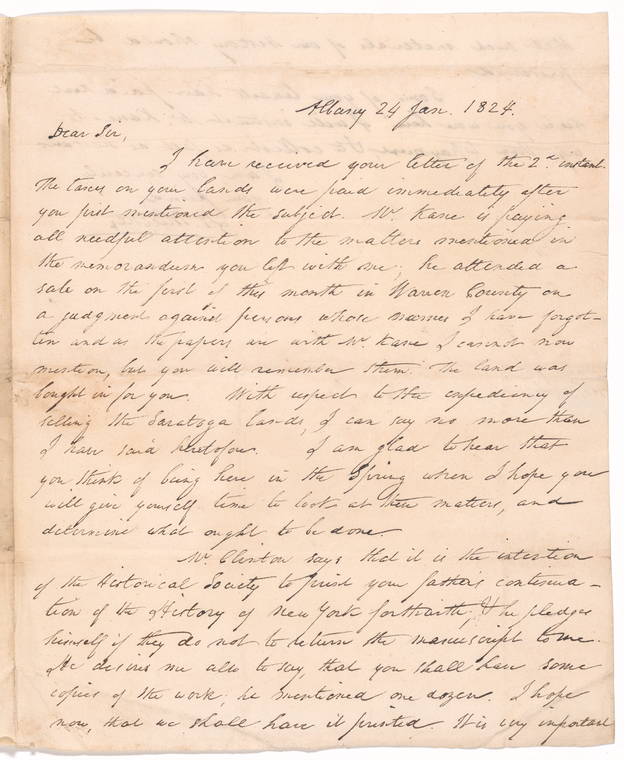 Albany 24 Jan. 1824.
Dear Sir,
I have received your letter of the 2d. instant.
The taxes on your lands were paid immediately after
you first mentioned the subject. Mr. Kane is paying
all needful attention to the matters mentioned in
the memorandum you left with me; he attended a
sale on the first of this month in Warren County on
a judgment against persons whose names I have forgot-
ten and as the papers are with Mr. Kane I cannot now
mention, but you will remember them. The land was
bought in for you. With respect to the expediency of
selling the Saratoga lands, I can say no more than
I have said heretofore. I am glad to hear that
you think of being here in the Spring when I hope you
will give yourself time to look at these matters, and
determine what ought to be done.
Mr. Clinton says that it is the intention
of the Historical Society to print your father's continua-
tion of the History of New York forthwith; & he pledges
himself if they do not to return the manuscript to me.
He desires me also to say, that you shall have some
copies of the work; he mentioned one dozen. I hope
now, that we shall have it printed. It is very important